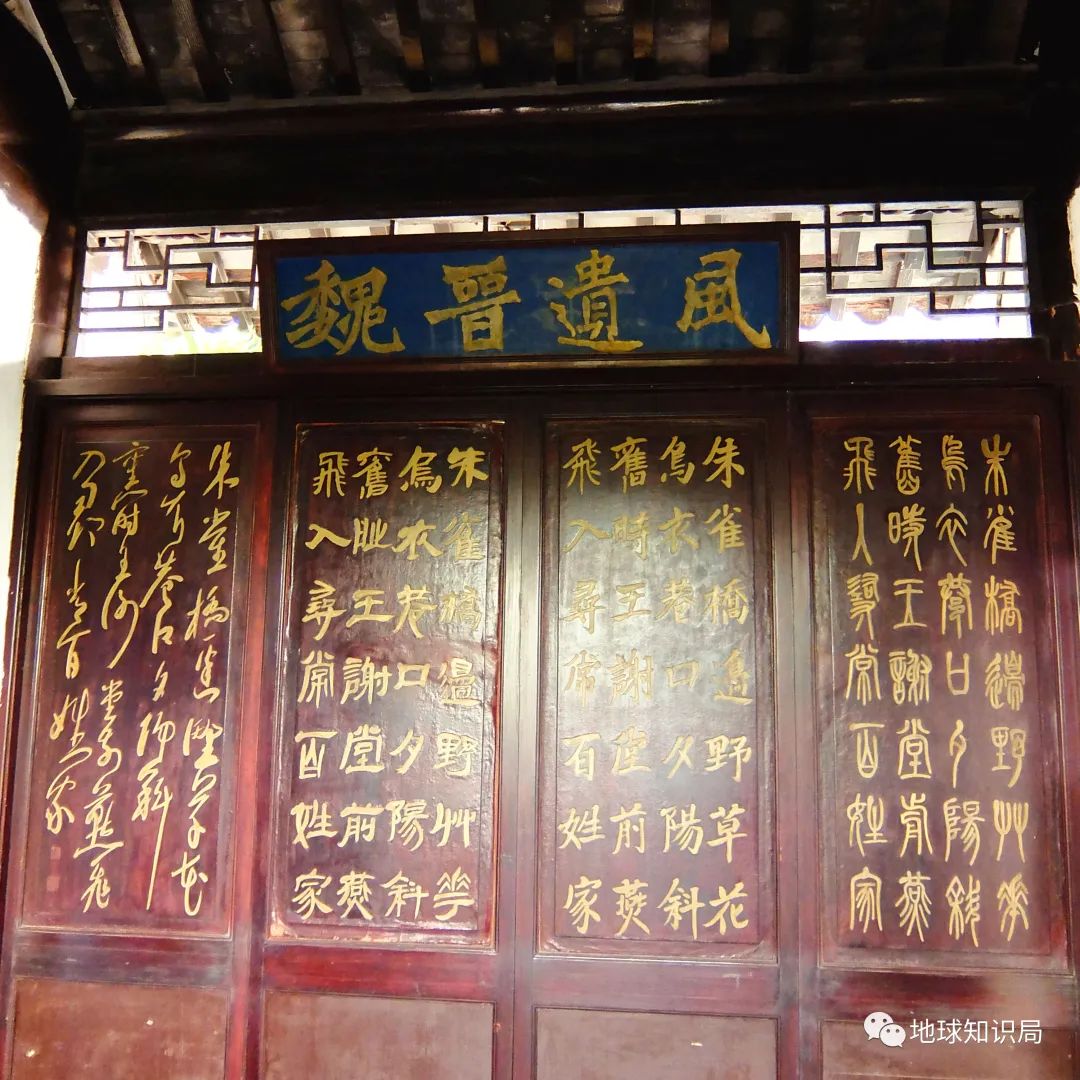 魏晉遺風
朱雀橋邊野艸華
烏衣巷口夕陽斜
舊時王謝堂前燕
飛入尋常百姓家
朱雀橋邊野草花
烏衣巷口夕陽斜
舊時王謝堂前燕
飛入尋常百姓家
朱雀橋邊野艸華
烏衣巷口夕陽斜
舊時王謝堂前燕
飛入尋常百姓家
朱雀橋邊野草花
烏衣巷口夕陽斜
舊時王謝堂前燕飛
入尋常百姓家
地球知识局